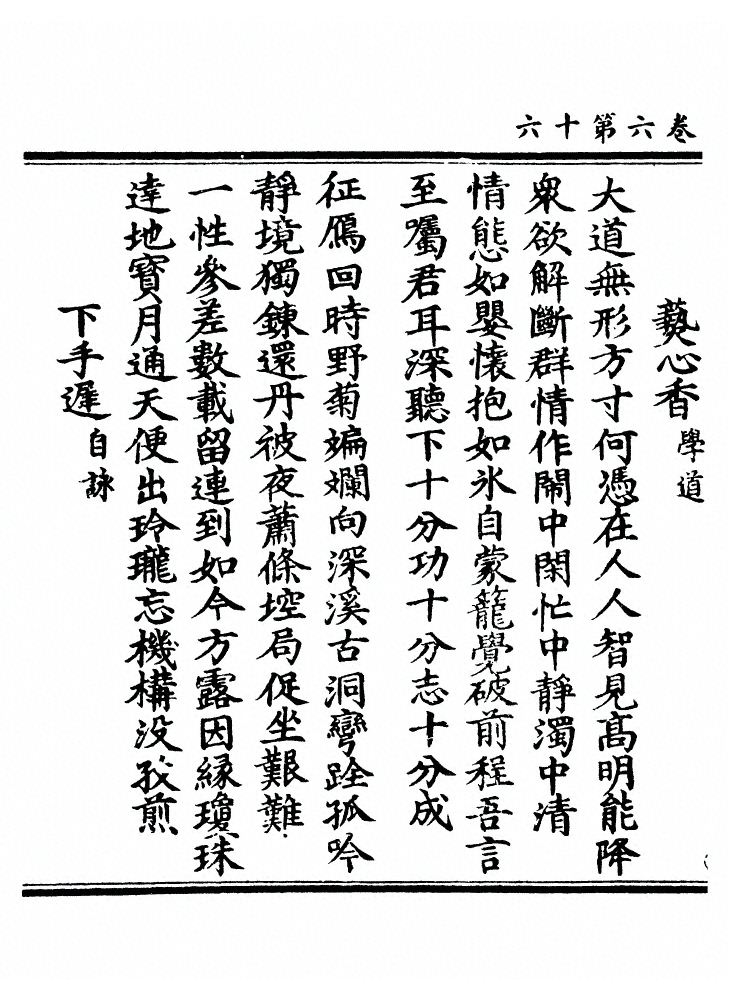 卷六第十六
爇心香 學道
大道無形方寸何憑在人人智見髙明能降
衆欲解斷群情作鬧中閑忙中靜濁中清
情態如嬰懷抱如氷自蒙籠覺破前程吾言
至囑君耳深聽下十分功十分志十分成
征鴈回時野菊斒斕向深溪古洞彎跧孤吟
靜境獨鍊還丹被夜蕭條埪局促坐艱難
一性參差數載留連到如今方露因縁瓊珠
達地寳月通天便出玲瓏忘機構没孜煎
下手遲 自詠